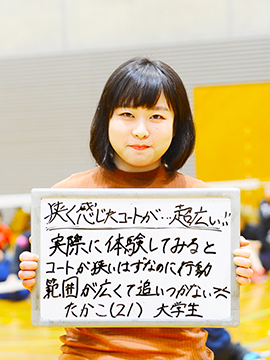 狭く感じたコートが…超広い!!
実際に体験してみると
コートが狭いはずなのに行動
範囲が広くて追いつかない
たかこ(21) 大学生